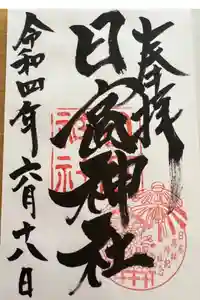 奉拝
日宮神社
令和四年六月十八日